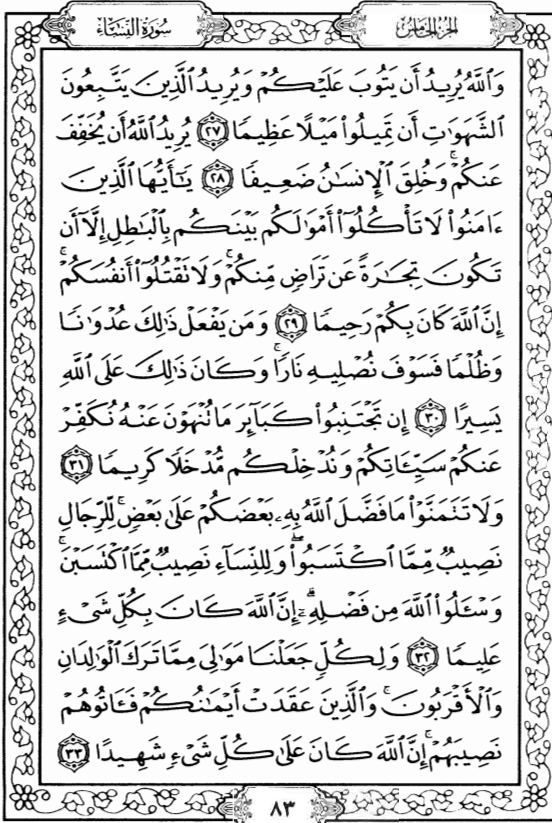 سُورَةُ النِّسَاءِ
الجُزْءُ الخَامِسُ
وَٱللَّهُ يُرِيدُ أَن يَتُوبَ عَلَيْكُمْ وَيُرِيدُ ٱلَّذِينَ يَتَّبِعُونَ
ٱلشَّهَوَٰتِ أَن تَمِيلُوا۟ مَيْلًا عَظِيمًا ٢٧ يُرِيدُ ٱللَّهُ أَن يُخَفِّفَ
عَنكُمْ ۚ وَخُلِقَ ٱلْإِنسَـٰنُ ضَعِيفًا ٢٨ يَـٰٓأَيُّهَا ٱلَّذِينَ
ءَامَنُوا۟ لَا تَأْكُلُوٓا۟ أَمْوَٰلَكُم بَيْنَكُم بِٱلْبَـٰطِلِ إِلَّآ أَن
تَكُونَ تِجَـٰرَةً عَن تَرَاضٍ مِّنكُمْ ۚ وَلَا تَقْتُلُوٓا۟ أَنفُسَكُمْ ۚ
إِنَّ ٱللَّهَ كَانَ بِكُمْ رَحِيمًا ٢٩ وَمَن يَفْعَلْ ذَٰلِكَ عُدْوَٰنًا
وَظُلْمًا فَسَوْفَ نُصْلِيهِ نَارًا ۚ وَكَانَ ذَٰلِكَ عَلَى ٱللَّهِ
يَسِيرًا ٣٠ إِن تَجْتَنِبُوا۟ كَبَآئِرَ مَا تُنْهَوْنَ عَنْهُ نُكَفِّرْ
عَنكُمْ سَيِّـَٔاتِكُمْ وَنُدْخِلْكُم مُّدْخَلًا كَرِيمًا ٣١
وَلَا تَتَمَنَّوْا۟ مَا فَضَّلَ ٱللَّهُ بِهِۦ بَعْضَكُمْ عَلَىٰ بَعْضٍ ۚ لِّلرِّجَالِ
نَصِيبٌ مِّمَّا ٱكْتَسَبُوا۟ ۖ وَلِلنِّسَآءِ نَصِيبٌ مِّمَّا ٱكْتَسَبْنَ ۚ
وَسْـَٔلُوا۟ ٱللَّهَ مِن فَضْلِهِۦٓ ۗ إِنَّ ٱللَّهَ كَانَ بِكُلِّ شَىْءٍ
عَلِيمًا ٣٢ وَلِكُلٍّ جَعَلْنَا مَوَٰلِىَ مِمَّا تَرَكَ ٱلْوَٰلِدَانِ
وَٱلْأَقْرَبُونَ ۚ وَٱلَّذِينَ عَقَدَتْ أَيْمَـٰنُكُمْ فَـَٔاتُوهُمْ
نَصِيبَهُمْ ۚ إِنَّ ٱللَّهَ كَانَ عَلَىٰ كُلِّ شَىْءٍ شَهِيدًا ٣٣
٨٣